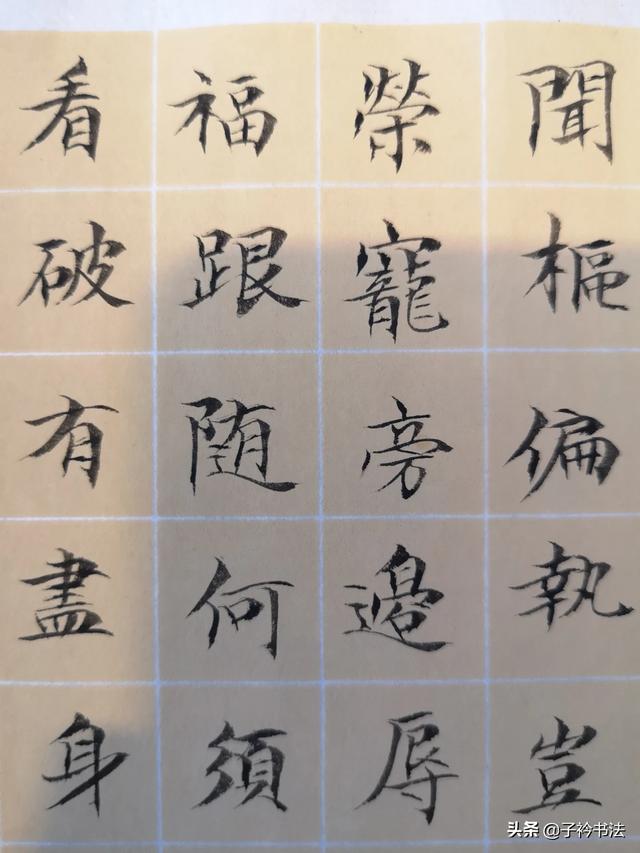 聞樞偏執豈
榮寵旁邊辱
福跟随何須
看破有盡身
头条 @子衿书法